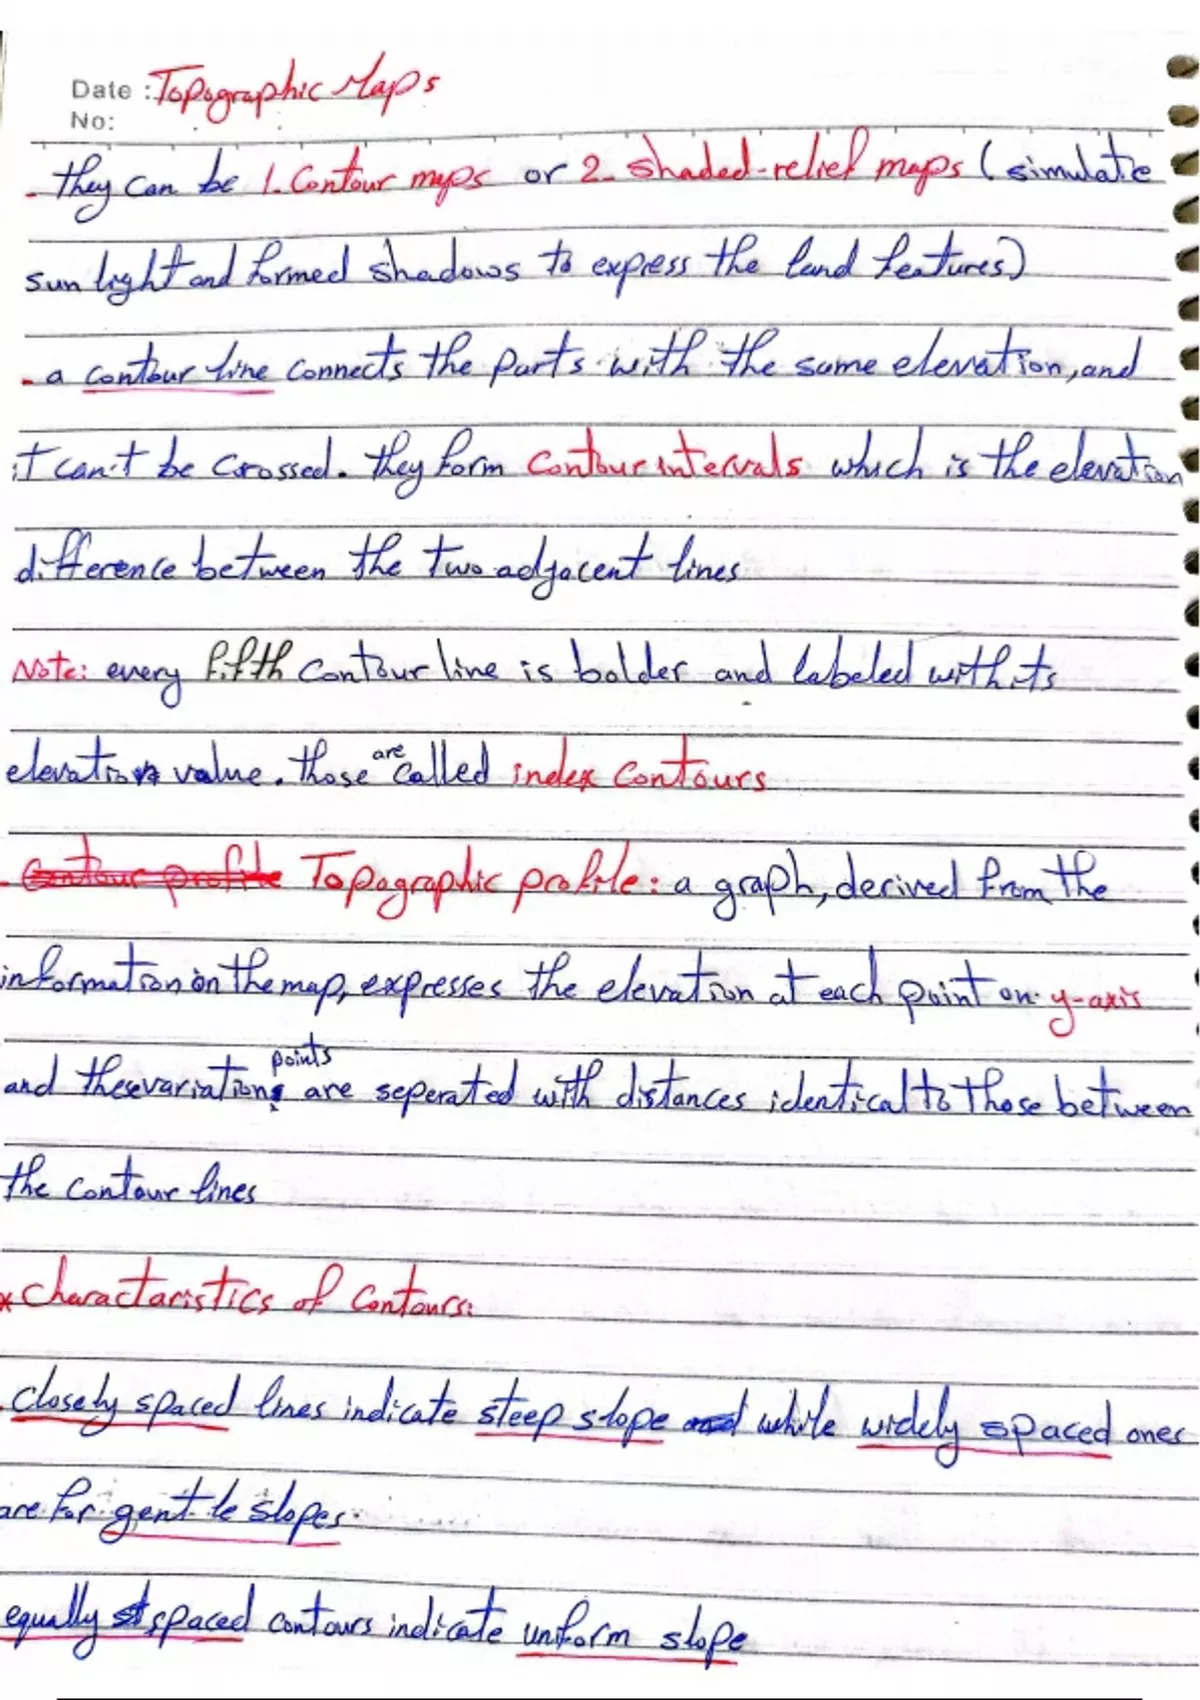 Date : Topographic Maps
No:
- they can be 1. Contour maps or 2- shaded-relief maps (simulate
sun light and formed shadows to express the land features)
- a contour line connects the parts with the same elevation, and
it can't be crossed. they form contour intervals which is the elevation
difference between the two adjacent lines
Note: every fifth contour line is bolder and labeled with its
elevation value. those are called index contours
- Contour profile Topographic profile: a graph, derived from the
information on the map, expresses the elevation at each point on y-axis
and these variations points are seperated with distances identical to those between
the contour lines
* charactaristics of contours:
. closely spaced lines indicate steep slope and while widely spaced ones
are for gentle slopes.
equally st spaced contours indicate uniform slope